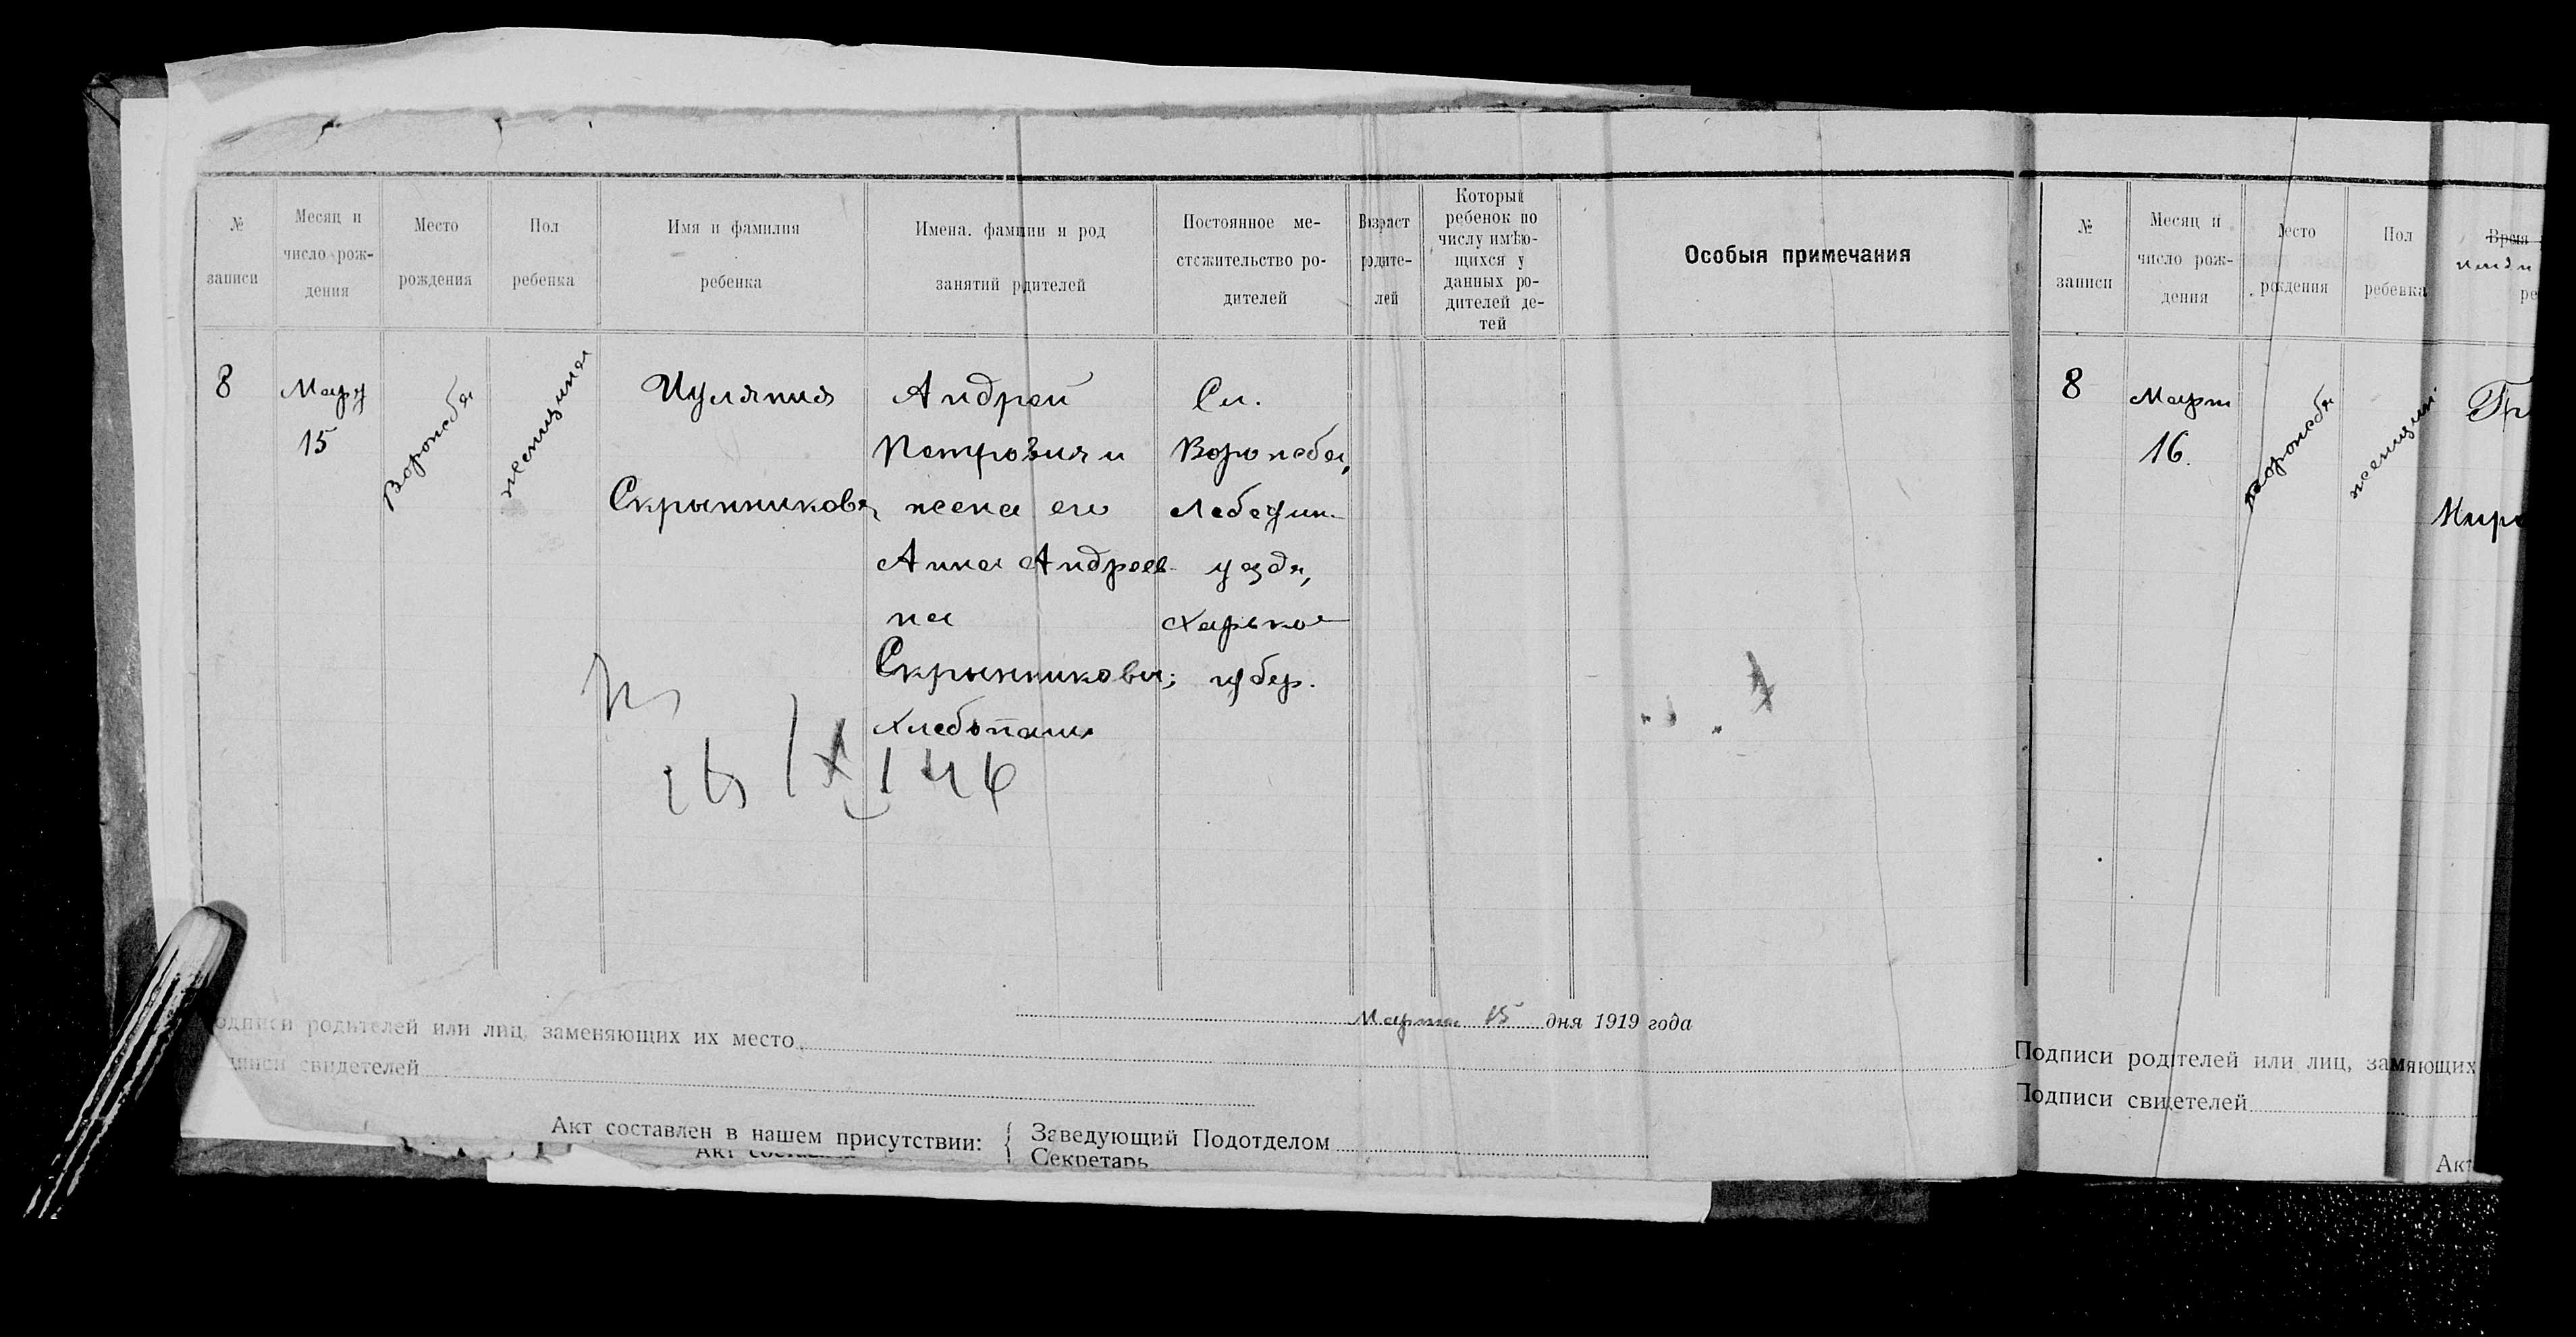 №
записи
Месяц и
число рож-
дения
Место
рождения
Пол
ребенка
Имя и фамилия
ребенка
Имена. фамции и род
занятий рдителей
Постоянное ме-
стожительство ро-
дителей
Возраст
родите-
лей
Который
ребенок по
числу имѣю-
щихся у
данных ро-
дителей де-
тей
Особыя примечания
8
15
Ворожба
женщина
Иуляния
Скрынникова
Андрей
Петрович и
жена его
Анна Андреев-
на
Скрынниковы;
хлебопаш.
Сл.
Ворожба,
Лебедин.
уезда,
Харьков
губер.
146
Марта 15 дня 1919 года
одписи родителей или лиц, заменяющих их место
писи свидетелей
Акт составлен в нашем присутствии:
Заведующий Подотделом
Секретарь
№
записи
Месяц и
число рож-
дения
Место
рождения
Пол
ребенка
Время
ре
8
Март
16.
Ворожба
женщин
Подписи родителей или лиц, замяющих
Подписи свидетелей
Акт